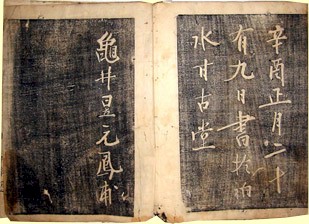 辛酉正月二十
有九日書於
水甘古堂
龜井昱元鳳甫